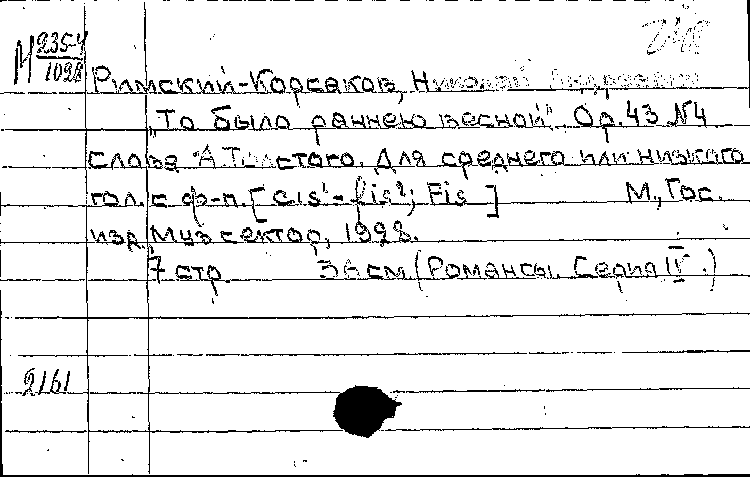 М 235-4
1028
248
Римский-Корсаков, Николай Андреевич
"То было раннею весной". Ор. 43 №4
слова А. Толстого. Для среднего или низкого
гол. с ф-п. [cis¹-fis²; Fis] М., Гос.
изд. Муз сектор, 1928.
7 стр. 36 см. (Романсы. Серия IV.)
2161